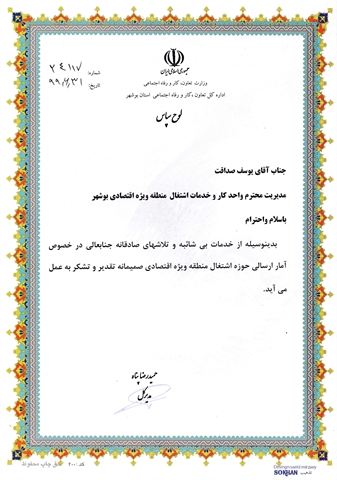 جمهوری اسلامی ایران
وزارت تعاون، کار و رفاه اجتماعی
اداره کل تعاون، کار و رفاه اجتماعی استان بوشهر
شماره: ۲۴۱۱۷
تاریخ: ۹۹/۲/۳۱
لوح سپاس
جناب آقای یوسف صداقت
مدیریت محترم واحد کار و خدمات اشتغال منطقه ویژه اقتصادی بوشهر
باسلام واحترام
بدینوسیله از خدمات بی شائبه و تلاشهای صادقانه جنابعالی در خصوص
آمار ارسالی حوزه اشتغال منطقه ویژه اقتصادی صمیمانه تقدیر و تشکر به عمل
می آید.
حمیدرضا پناه
مدیرکل
کد: ۲۰۰۰
حق چاپ محفوظ
SOKHAN
تذهیب